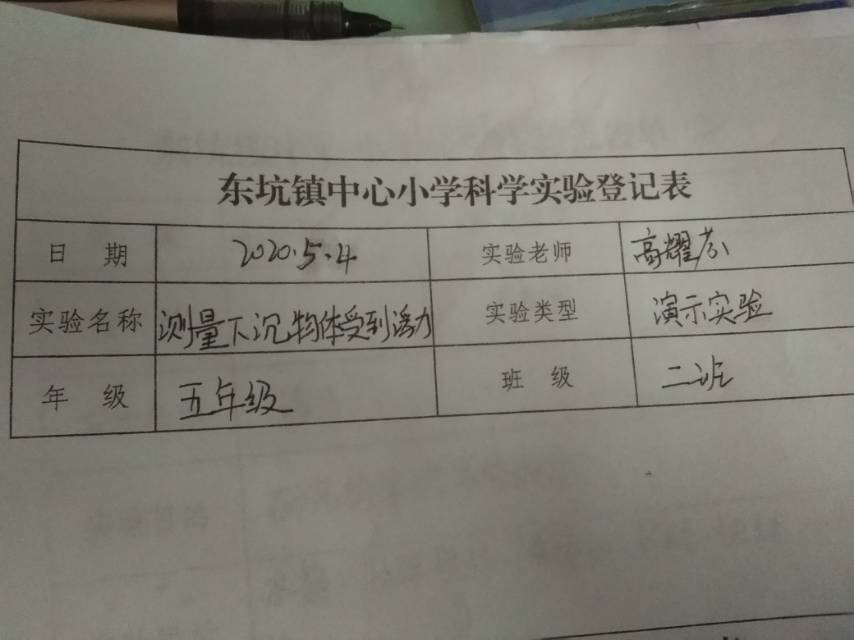 东坑镇中心小学科学实验登记表
日 期 2020.5.4 实验老师 高耀芬
实验名称 测量下沉物体受到浮力 实验类型 演示实验
年 级 五年级 班 级 二班